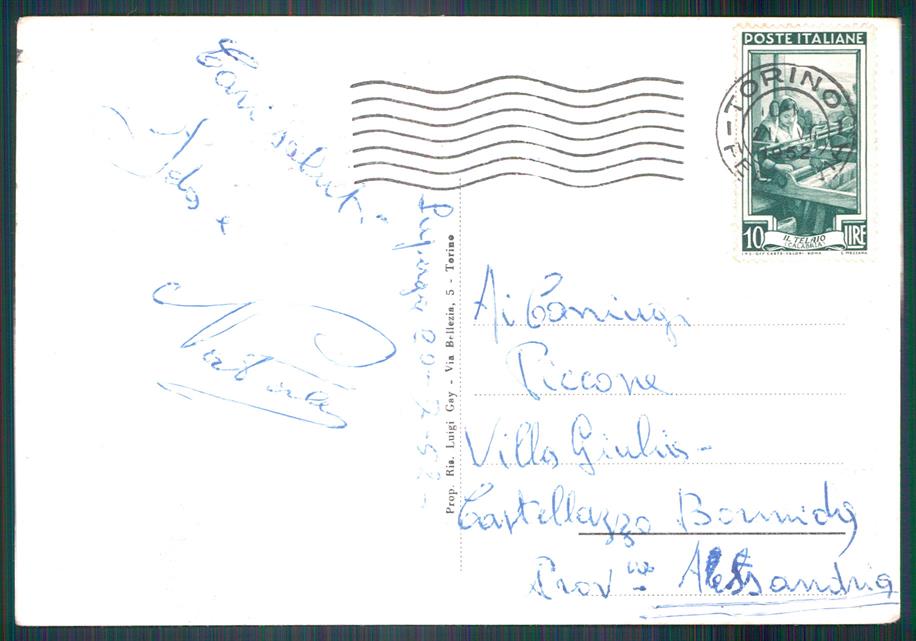 Cari saluti
Ida e
Superga 20-7-52-
Prop. Ris. Luigi Gay - Via Bellezia, 5 - Torino
POSTE ITALIANE
TORINO
10 LIRE
IL TELAIO
(CALABRIA)
Ai Coniugi
Piccone
Villa Giulia-
Castellazzo Bormida
Prov.na Alessandria